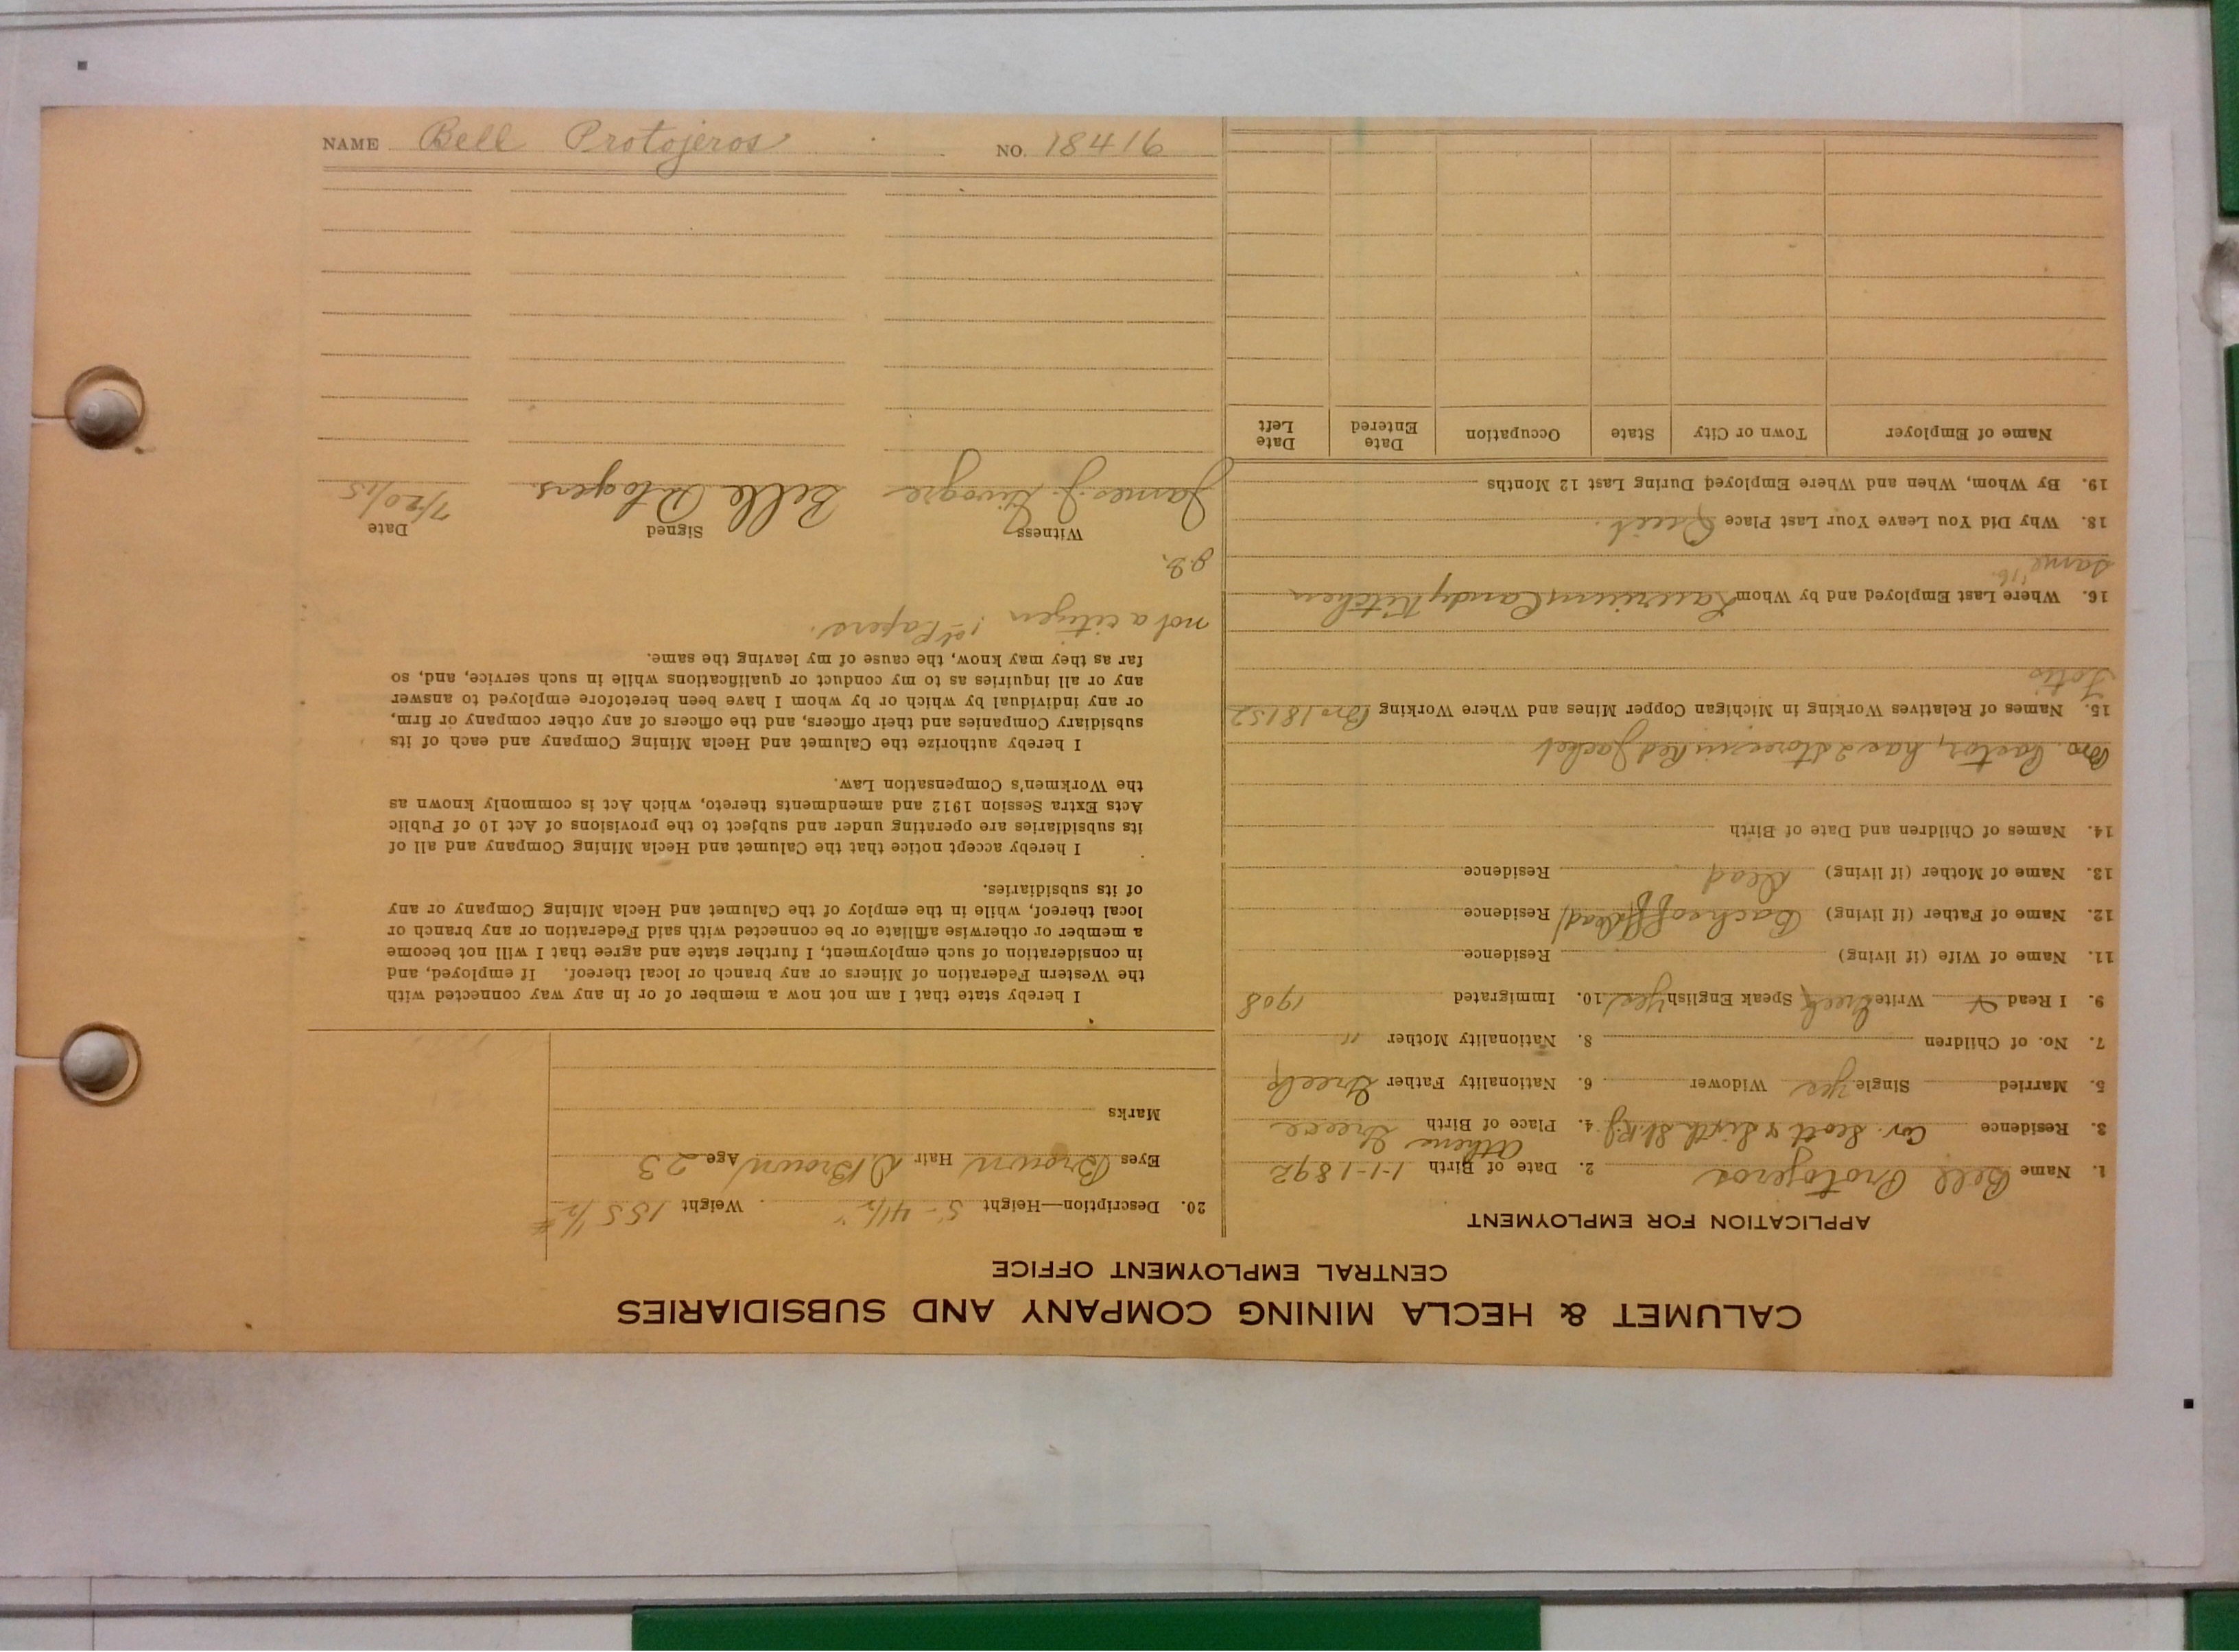 CALUMET & HECLA MINING COMPANY AND SUBSIDIARIES
CENTRAL EMPLOYMENT OFFICE
APPLICATION FOR EMPLOYMENT
1. Name Bell Protojeros 2. Date of Birth 1-1-1892
Athens
3. Residence Cor. Scott & Sixth St. R.J. 4. Place of Birth Greece
5. Married Single yes Widower 6. Nationality Father Greek
7. No. of Children 8. Nationality Mother "
9. I Read & Write Greek Speak English yes 10. Immigrated 1908
11. Name of Wife (if living) Residence
12. Name of Father (if living) (dead) Residence
13. Name of Mother (if living) Dead Residence
14. Names of Children and Date of Birth
Bro. has 2 stores in Red Jacket
15. Names of Relatives Working in Michigan Copper Mines and Where Working Bro 18152
16. Where Last Employed and by Whom Laurium Candy Kitchen
same '16.
18. Why Did You Leave Your Last Place Quit.
19. By Whom, When and Where Employed During Last 12 Months
Name of Employer Town or City State Occupation Date Entered Date Left
20. Description—Height 5-4 1/2" Weight 155 1/2 #
Eyes Brown Hair D. Brown Age 23
Marks
I hereby state that I am not now a member of or in any way connected with
the Western Federation of Miners or any branch or local thereof. If employed, and
in consideration of such employment, I further state and agree that I will not become
a member or otherwise affiliate or be connected with said Federation or any branch or
local thereof, while in the employ of the Calumet and Hecla Mining Company or any
of its subsidiaries.
I hereby accept notice that the Calumet and Hecla Mining Company and all of
its subsidiaries are operating under and subject to the provisions of Act 10 of Public
Acts Extra Session 1912 and amendments thereto, which Act is commonly known as
the Workmen's Compensation Law.
I hereby authorize the Calumet and Hecla Mining Company and each of its
subsidiary Companies and their officers, and the officers of any other company or firm,
or any individual by which or by whom I have been heretofore employed to answer
any or all inquiries as to my conduct or qualifications while in such service, and, so
far as they may know, the cause of my leaving the same.
not a citizen 1st Papers.
Witness Signed Date
James J. Belle 7/20/15
NAME Bell Protojeros NO. 18416